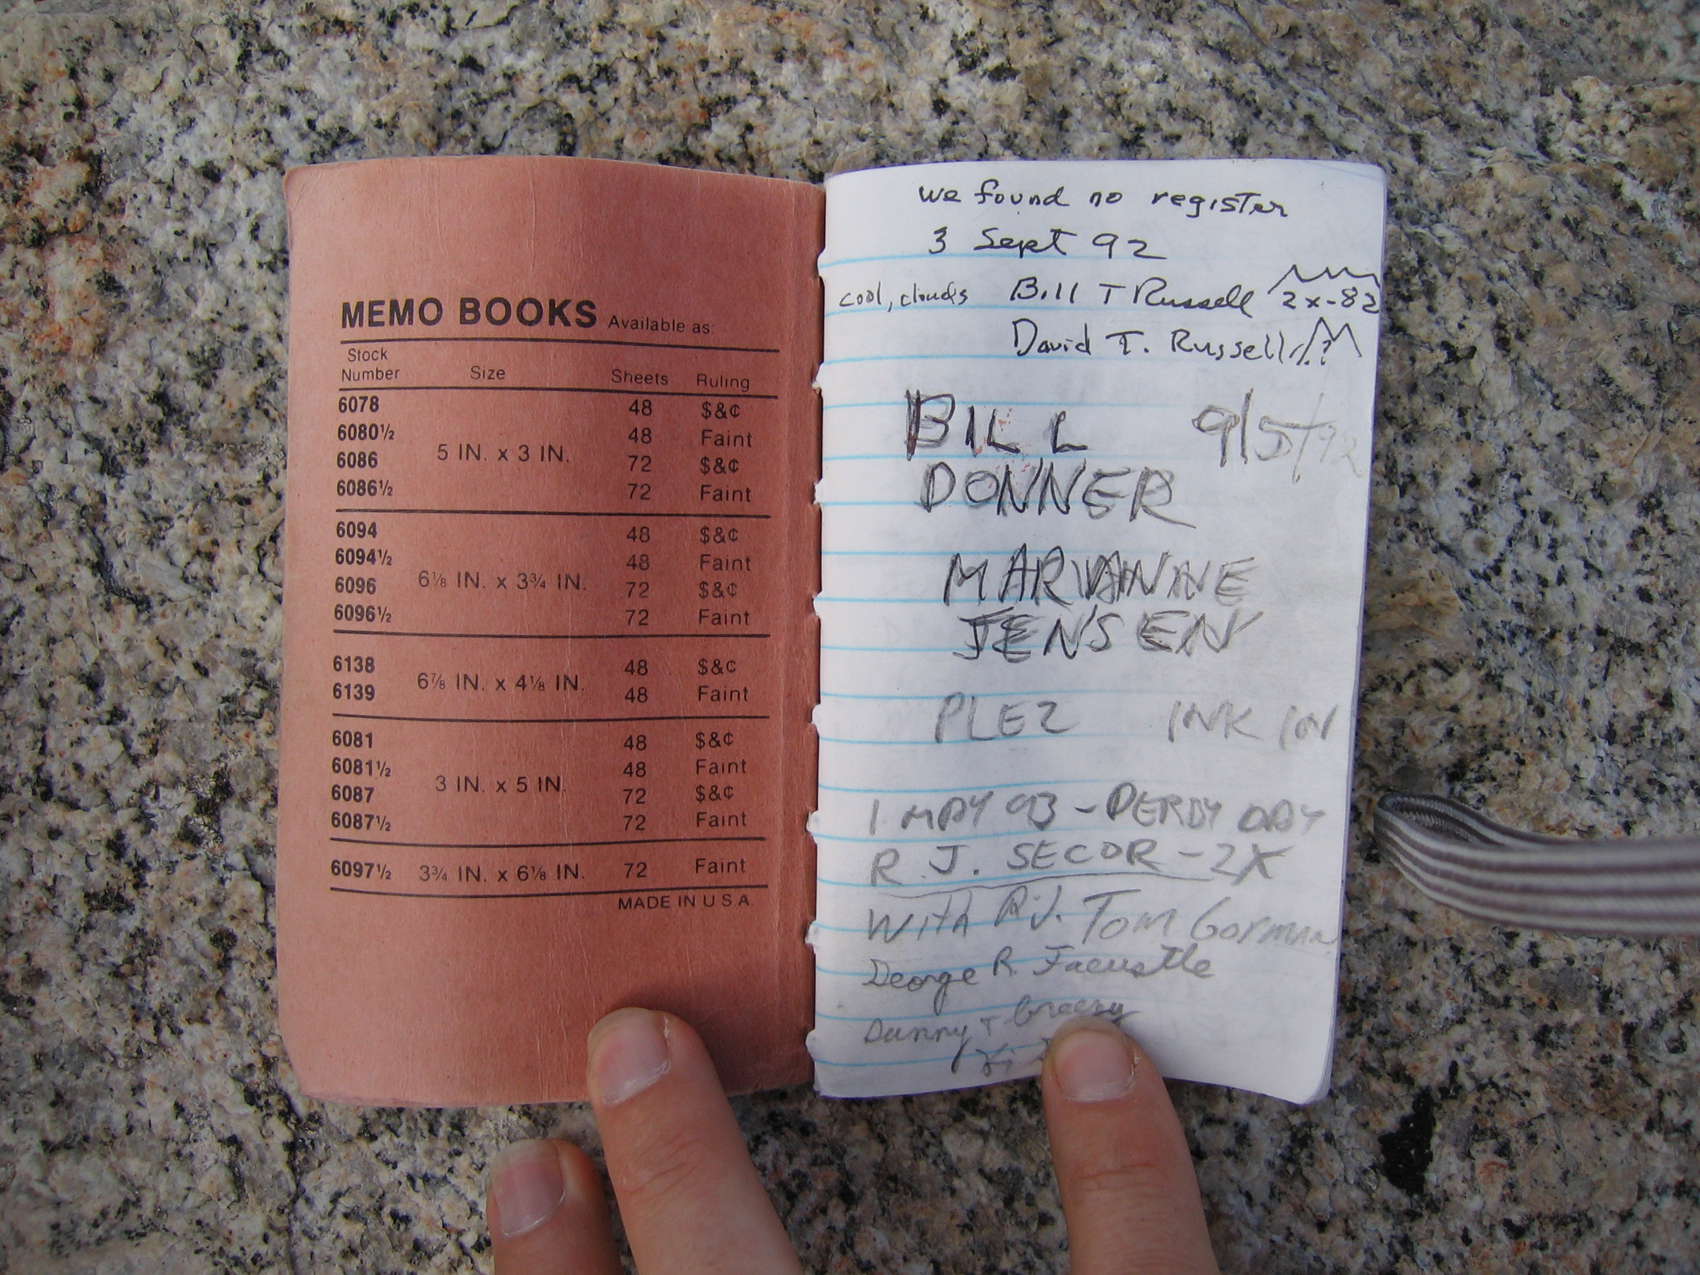 MEMO BOOKS Available as:
Stock Number Size Sheets Ruling
6078 48 $&¢
6080½ 48 Faint
5 IN. x 3 IN.
6086 72 $&¢
6086½ 72 Faint
6094 48 $&¢
6094½ 48 Faint
6⅛ IN. x 3¾ IN.
6096 72 $&¢
6096½ 72 Faint
6138 48 $&¢
6⅞ IN. x 4⅛ IN.
6139 48 Faint
6081 48 $&¢
6081½ 48 Faint
3 IN. x 5 IN.
6087 72 $&¢
6087½ 72 Faint
6097½ 3¾ IN. x 6⅛ IN. 72 Faint
MADE IN U S A.
we found no register
3 Sept 92
cool, clouds Bill T Russell 2x-82
David T. Russell
BILL 9/5/92
DONNER
MARIANNE
JENSEN
PLEZ INK ON
1 MAY 93 - DERBY DAY
R. J. SECOR - 2X
With R.J. Tom Gorman
George R.
Danny +